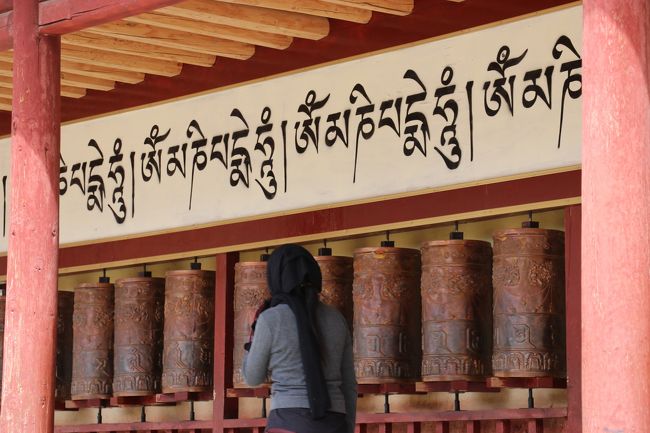 ། པདྨེཧཱུྃ།ཨོཾམཎིཔདྨེཧཱུྃ།ཨོཾམཎིཔདྨེཧཱུྃ།ཨོཾམཎི